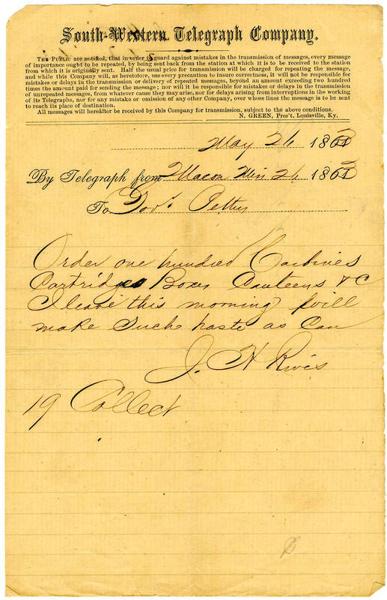 South-Western Telegraph Company.
THE PUBLIC are notified, that in order to guard against mistakes in the transmission of messages, every message
of importance ought to be repeated, by being sent back from the station at which it is to be received to the station
from which it is originally sent. Half the usual price for transmission will be charged for repeating the message,
and while this Company will, as heretofore, use every precaution to insure correctness, it will not be responsible for
mistakes or delays in the transmission or delivery of repeated messages, beyond an amount exceeding two hundred
times the amount paid for sending the message; nor will it be responsible for mistakes or delays in the transmission
of unrepeated messages, from whatever cause they may arise, nor for delays arising from interruptions in the working
of its Telegraphs, nor for any mistake or omission of any other Company, over whose lines the message is to be sent
to reach its place of destination.
All messages will hereafter be received by this Company for transmission, subject to the above conditions.
N. GREEN, Pres't, Louisville, Ky.
May 26 1863
By Telegraph from Macon Miss 26 1863
To Gov. Pettus
Order one hundred Carbines
Cartridge Boxes Canteens &c
I leave this morning will
make such haste as Can
J. H Rives
19 Collect